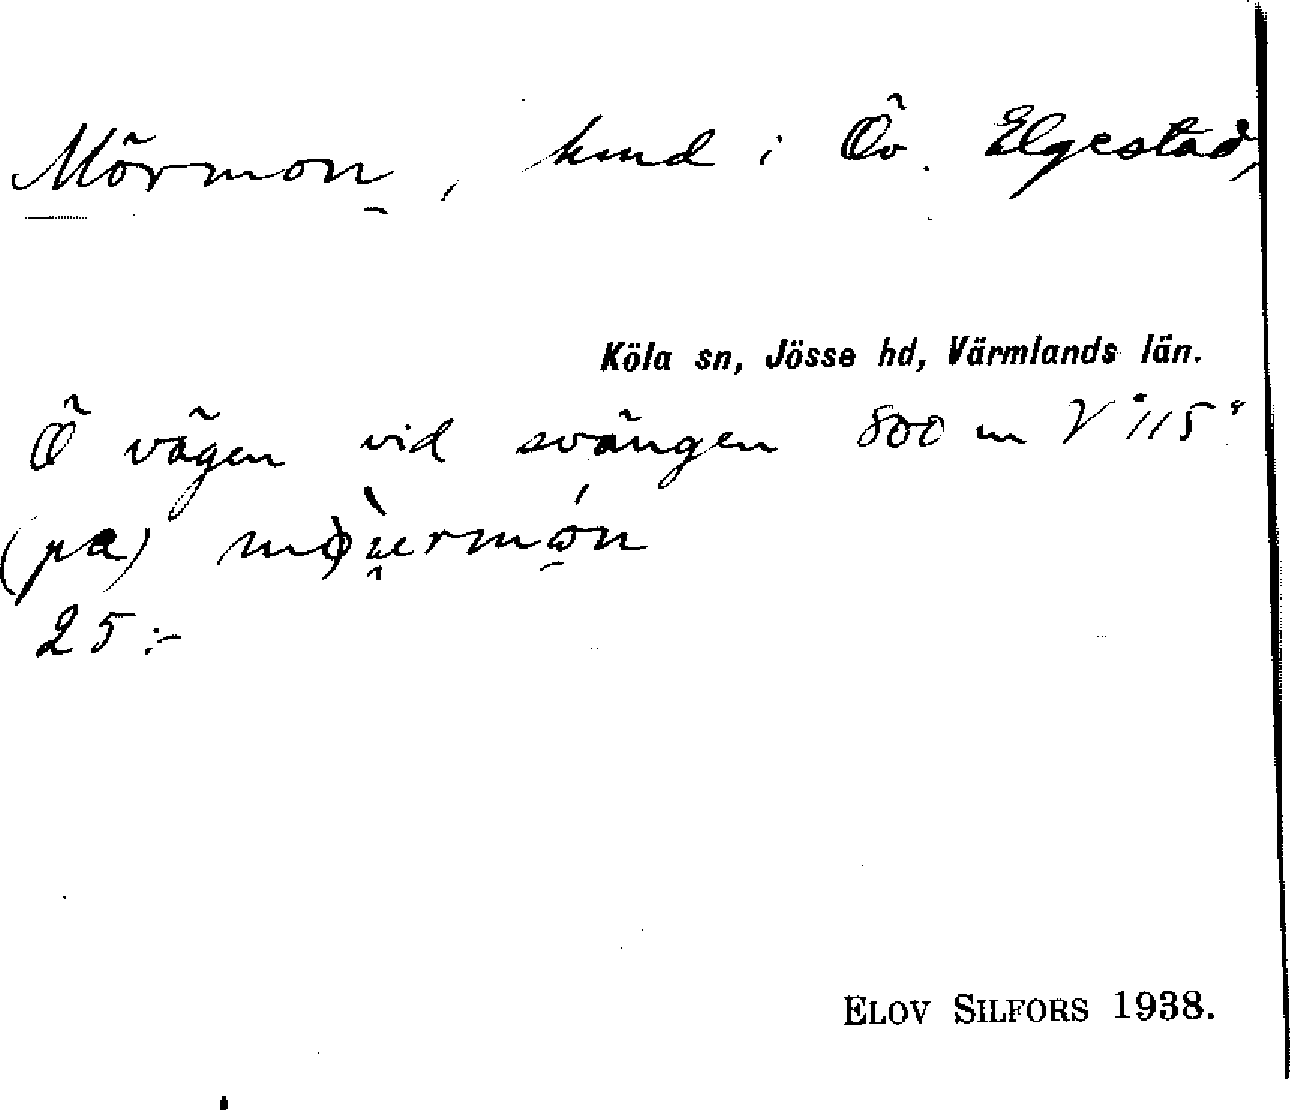 Mörmon, lund i Öv. Elgestad,
Köla sn, Jösse hd, Värmlands län.
Ö vägen vid svängen 800 m V "115"
(pa)
25:-
ELOV SILFORS 1938.